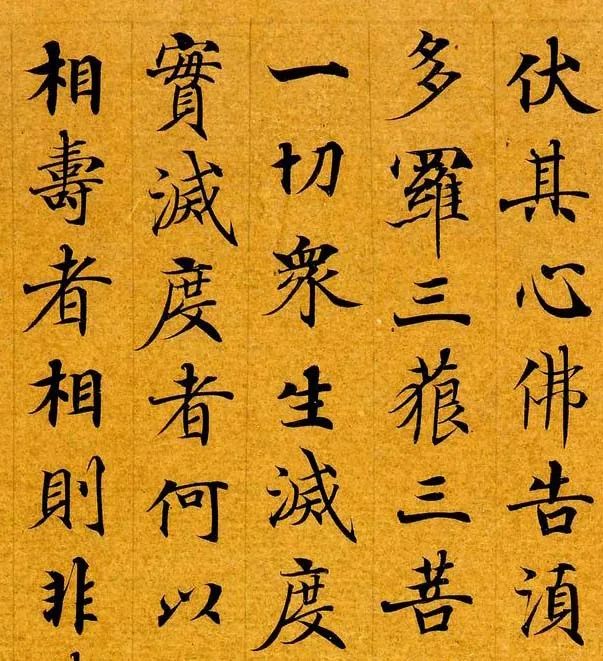 伏其心佛告湏
多羅三藐三菩
一切衆生滅度
實滅度者何以
相壽者相則非